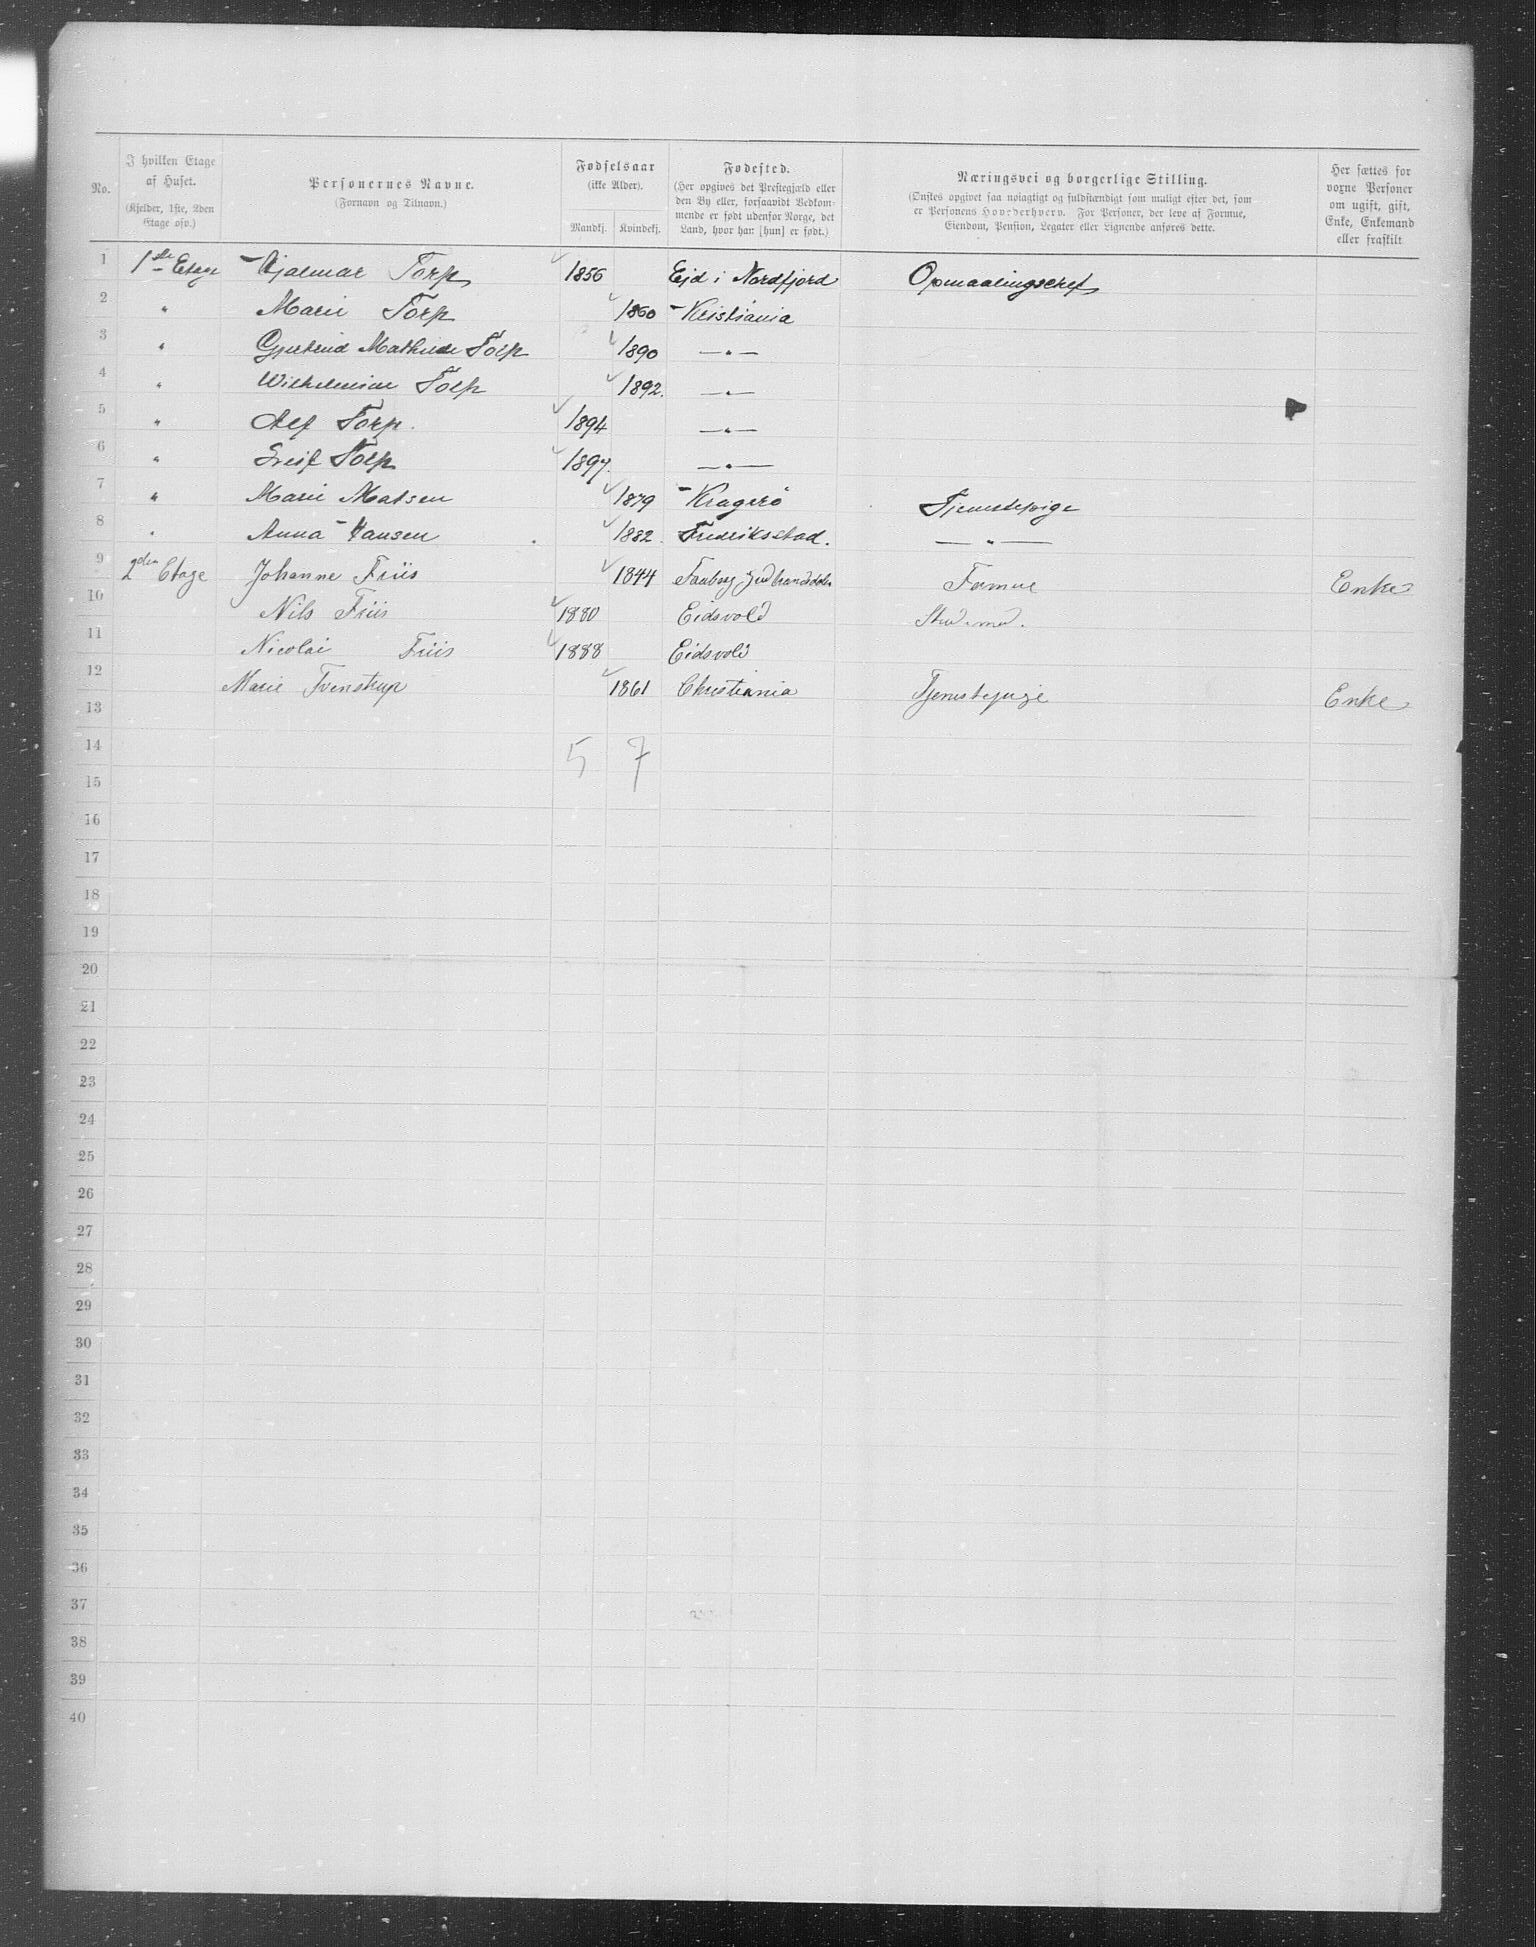 No. I hvilken Etage af Huset. (Kjelder, 1ste, 2den Etage osv.) Personernes Navne. (Fornavn og Tilnavn.) Fødselsaar (ikke Alder). Mandkj. Kvindekj. Fødested. (Her opgives det Prestegjæld eller den By eller, forsaavidt Vedkommende er født udenfor Norge, det Land, hvor han [hun] er født.) Næringsvei og borgerlige Stilling. (Ønskes opgivet saa nøiagtigt og fuldstændigt som muligt efter det, som er Personens Hovederhverv. For Personer, der leve af Formue, Eiendom, Pension, Legater eller Lignende anføres dette. Her sættes for voxne Personer om ugift, gift, Enke, Enkemand eller fraskilt
1 1ste Etage Hjalmar Torp 1856 Eid i Nordfjord Opmaalingschef
2 " Marie Torp 1860 Kristiania
3 " Gjertrud Mathilde Torp 1890 — " —
4 " Wilhelmine Torp 1892. — " —
5 " Alf Torp. 1894 — " —
6 " Leif Torp 1897. — " —
7 " Marie Matsen 1879 Kragerö Tjenestepige
8 " Anna Hansen 1882. Fredriksstad. — " —
9 2den Etage Johanne Friis 1844 Faaberg Gudbrandsdalen Formue Enke
10 Nils Friis 1880 Eidsvold Stud. med.
11 Nicolai Friis 1888 Eidsvold
12 Marie Tvenstrup 1861 Christiania Tjenestepige Enke
13
14 5 7
15
16
17
18
19
20
21
22
23
24
25
26
27
28
29
30
31
32
33
34
35
36
37
38
39
40